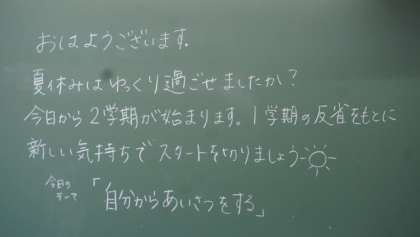 おはようございます。
夏休みはゆっくり過ごせましたか?
今日から2学期が始まります。1学期の反省をもとに
新しい気持ちでスタートを切りましょう
今日のテーマ「自分からあいさつをする」